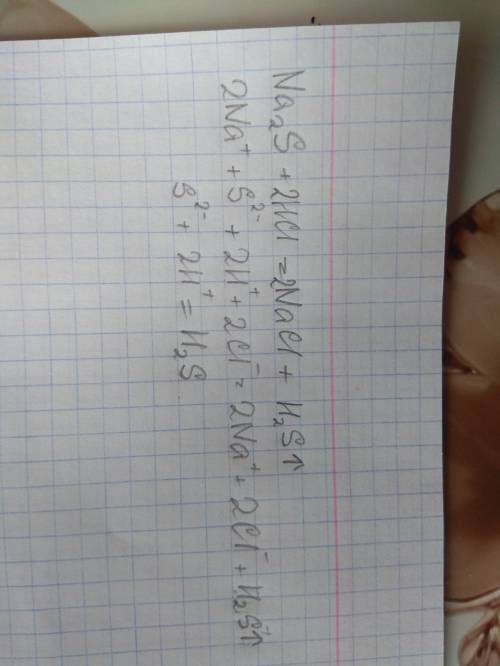 Na₂S + 2HCl = 2NaCl + H₂S↑
2Na⁺ + S²⁻ + 2H⁺ + 2Cl⁻ = 2Na⁺ + 2Cl⁻ + H₂S↑
S²⁻ + 2H⁺ = H₂S